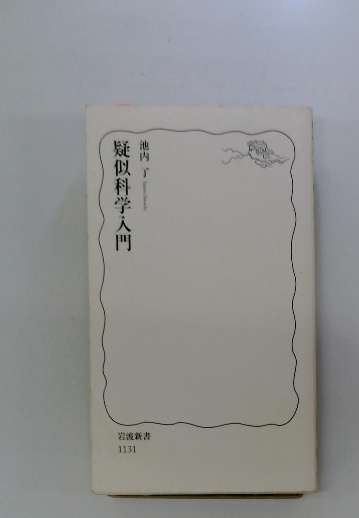 疑似科学入門
池内 了
岩波新書
1131